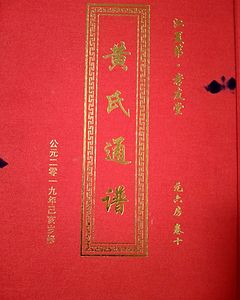 江夏郡·孝友堂
元六房 卷十
黄氏通谱
公元二零一九年己亥岁修